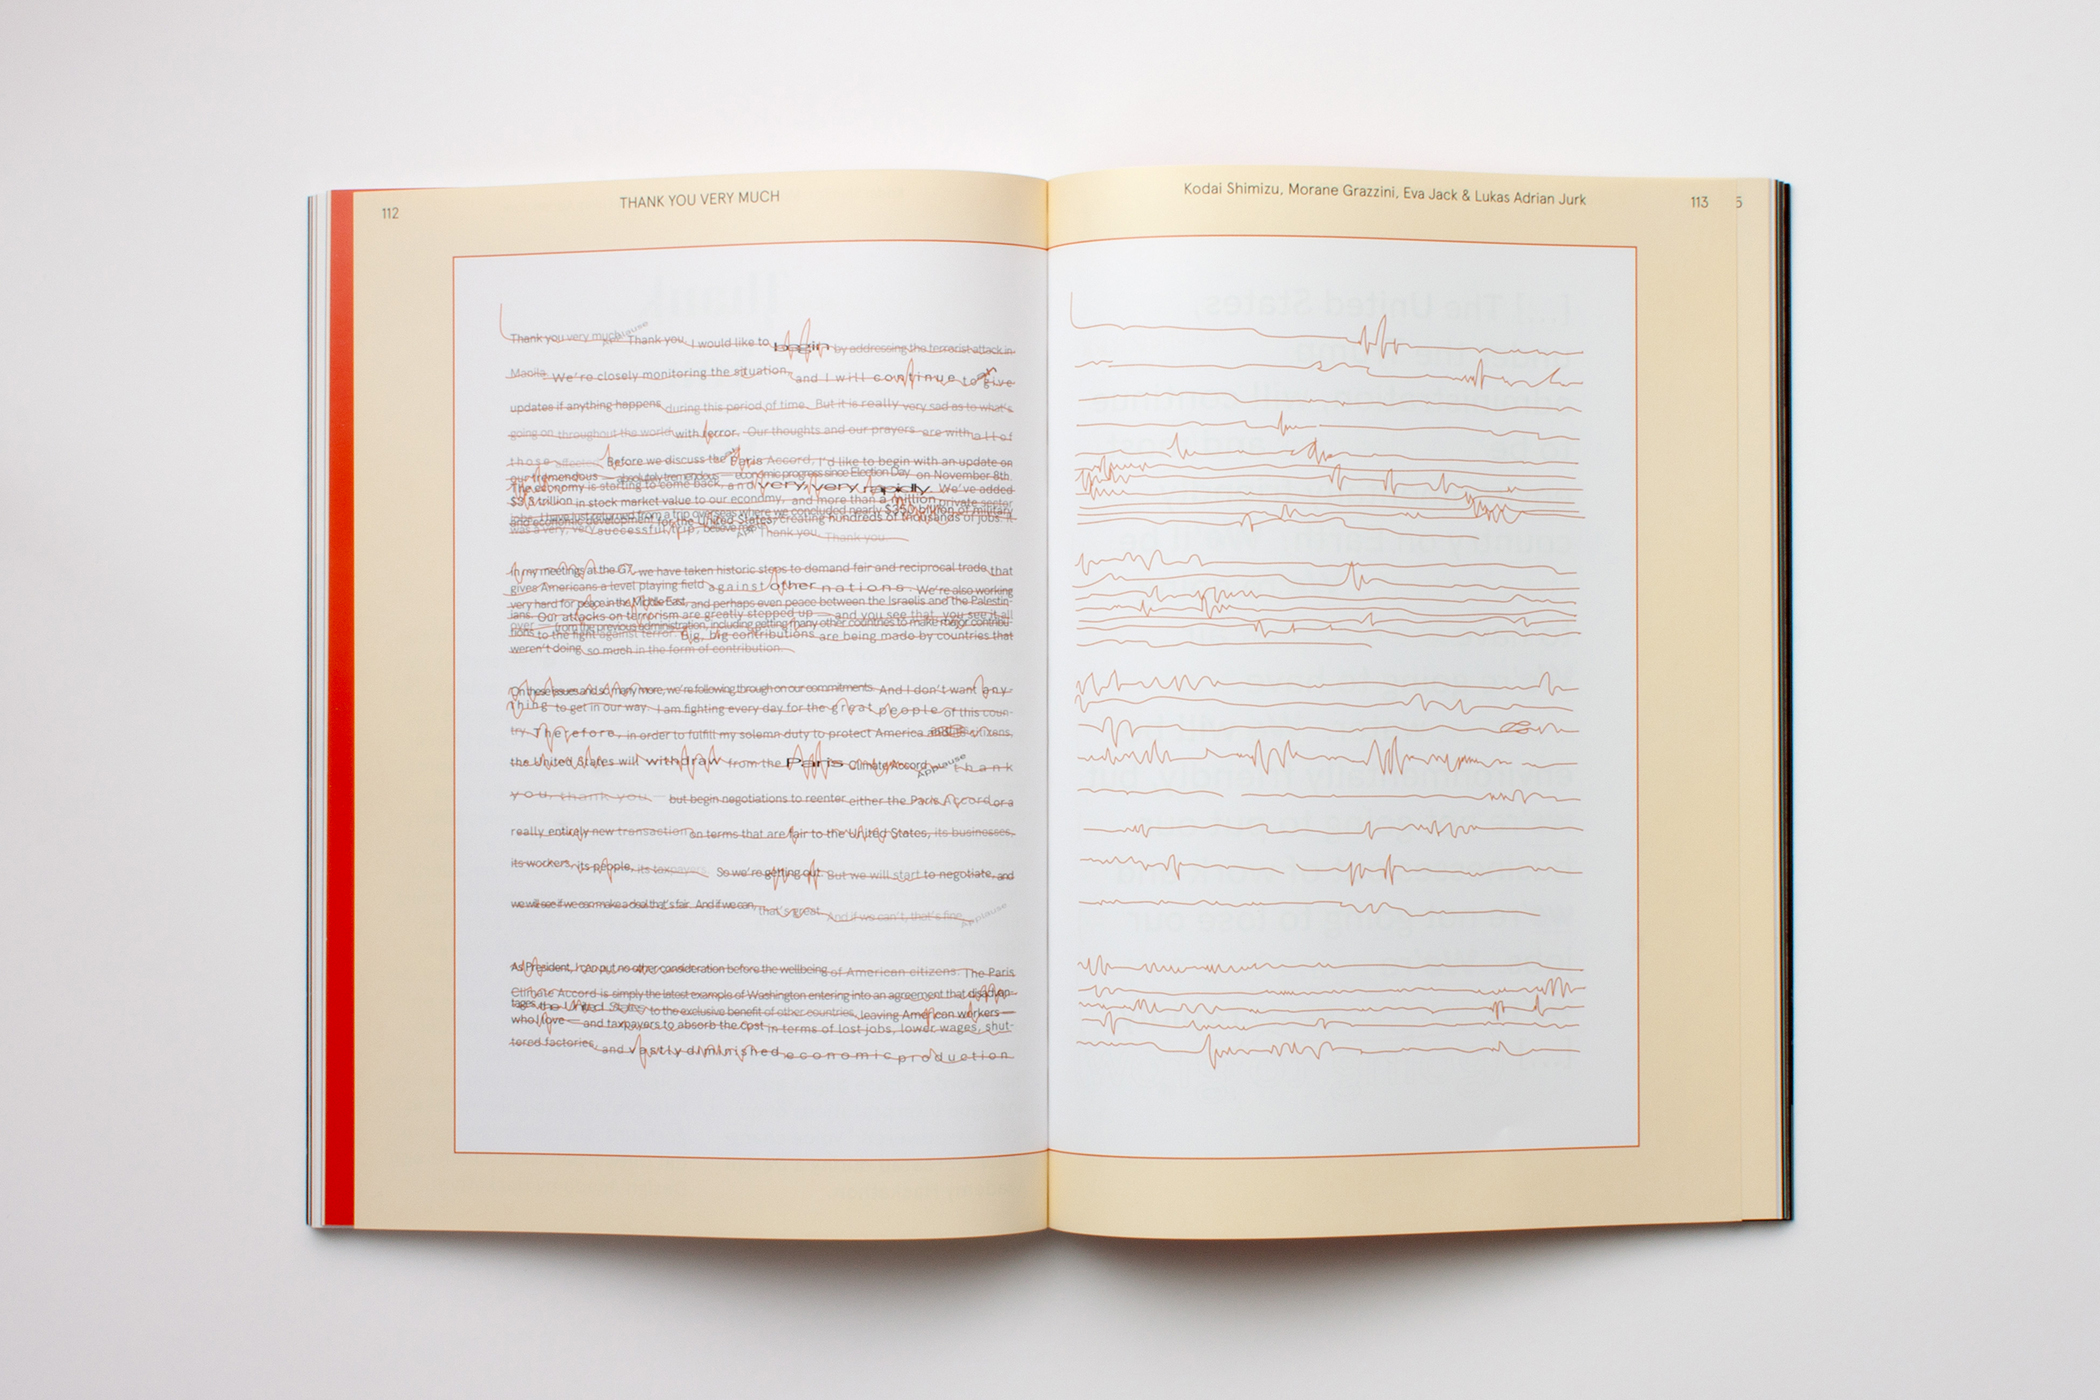 112
THANK YOU VERY MUCH
Kodai Shimizu, Morane Grazzini, Eva Jack & Lukas Adrian Jurk
113
5
Thank you very much. Applause Thank you. I would like to begin by addressing the terrorist attack in
Manila. We're closely monitoring the situation, and I will continue to give
updates if anything happens during this period of time. But it is really very sad as to what's
going on throughout the world with terror. Our thoughts and our prayers are with all of
those affected. Before we discuss the Paris Accord, I'd like to begin with an update on
our tremendous — absolutely tremendous — economic progress since Election Day on November 8th.
The economy is starting to come back, and very, very rapidly. We've added
$3.3 trillion in stock market value to our economy, and more than a million private sector
jobs. I have just returned from a trip overseas where we concluded nearly $350 billion of military
and economic development for the United States, creating hundreds of thousands of jobs. It
was a very, very successful trip, believe me. Applause Thank you. Thank you.
In my meetings at the G7, we have taken historic steps to demand fair and reciprocal trade that
gives Americans a level playing field against other nations. We're also working
very hard for peace in the Middle East, and perhaps even peace between the Israelis and the Palestin-
ians. Our attacks on terrorism are greatly stepped up — and you see that, you see it all
over — from the previous administration, including getting many other countries to make major contribu-
tions to the fight against terror. Big, big contributions are being made by countries that
weren't doing so much in the form of contribution.
On these issues and so many more, we're following through on our commitments. And I don't want any-
thing to get in our way. I am fighting every day for the great people of this coun-
try. Therefore, in order to fulfill my solemn duty to protect America and its citizens,
the United States will withdraw from the Paris Climate Accord Applause — thank
you, thank you — but begin negotiations to reenter either the Paris Accord or a
really entirely new transaction on terms that are fair to the United States, its businesses,
its workers, its people, its taxpayers. So we're getting out. But we will start to negotiate, and
we will see if we can make a deal that's fair. And if we can, that's great. And if we can't, that's fine. Applause
As President, I can put no other consideration before the wellbeing of American citizens. The Paris
Climate Accord is simply the latest example of Washington entering into an agreement that disadvan-
tages the United States to the exclusive benefit of other countries, leaving American workers —
who I love — and taxpayers to absorb the cost in terms of lost jobs, lower wages, shut-
tered factories, and vastly diminished economic production